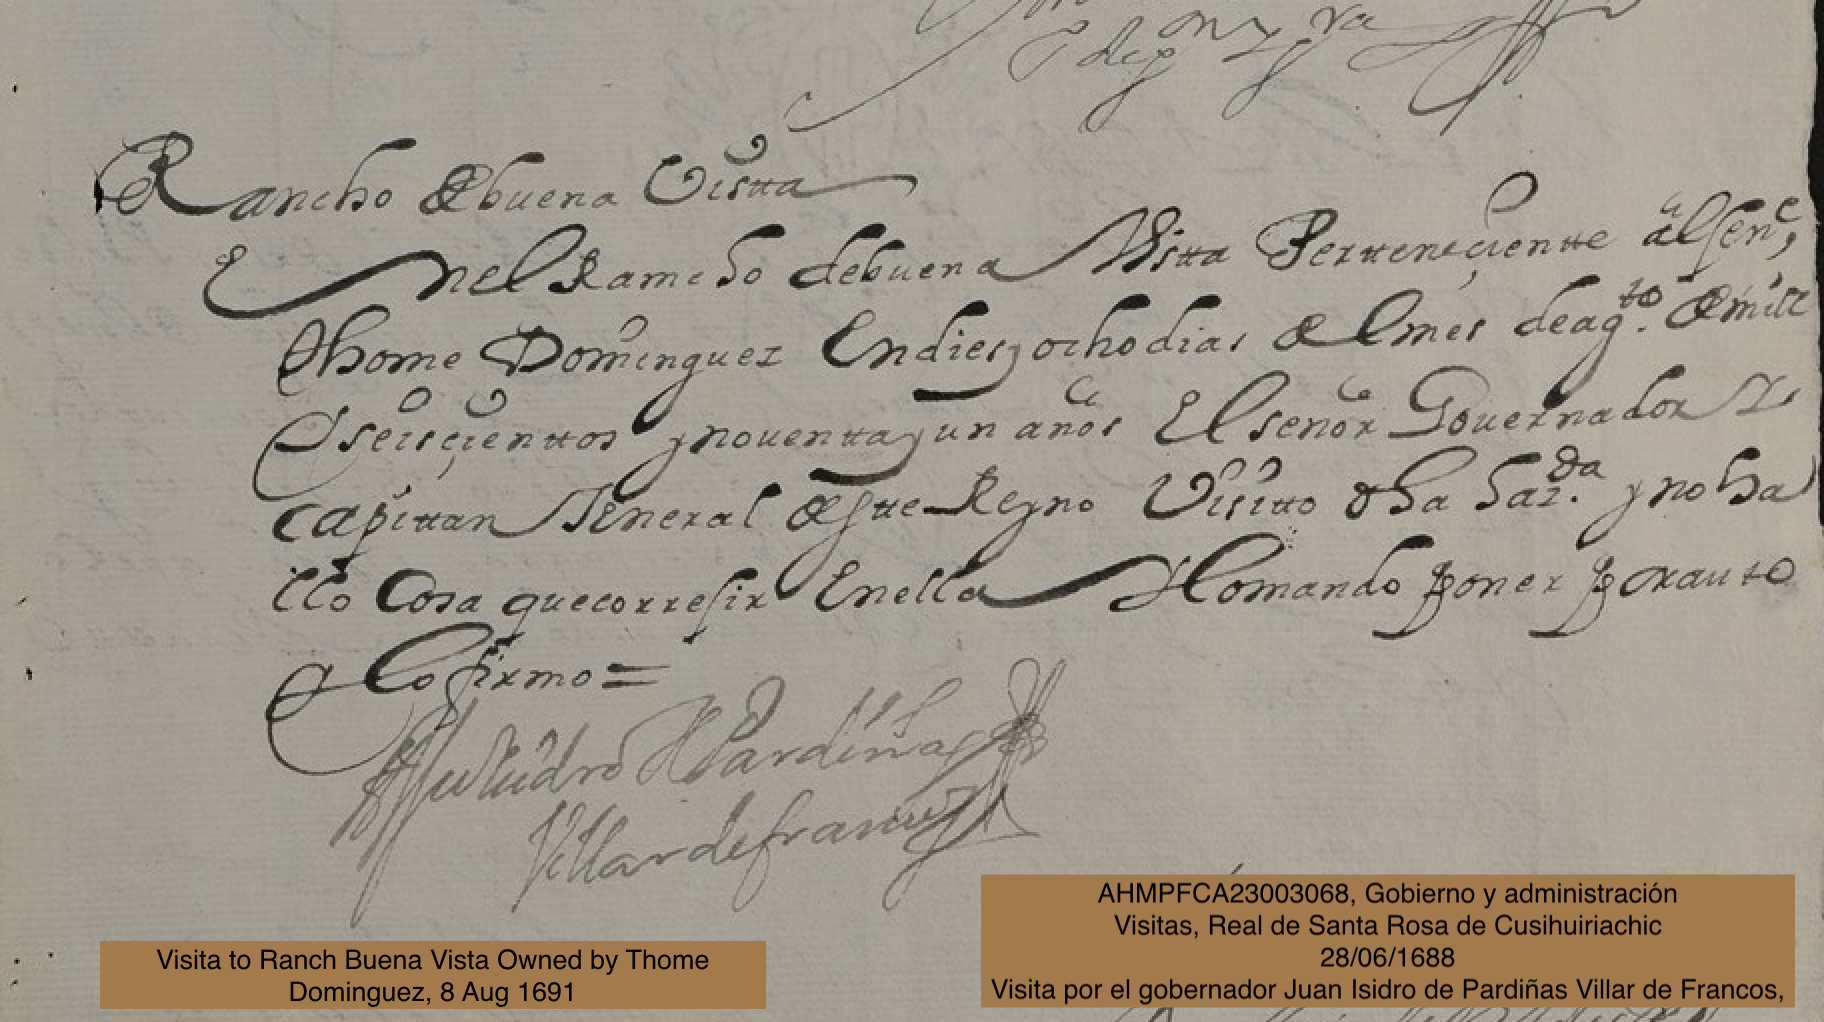 Rancho de buena Vistta
En el Rancho de buena Vista Pertteneçiente al sen.e
thome Dominguez En dies y ocho dias de el mes de ag.to de mill
y seiscienttos y nouentta y un años El señor Gouernador y
capittan Jeneral de estte Reyno Vissitto dha haz.da y no ha
llo Cosa que corresir En ella y lo mando poner por auto
y lo firmo =
Ju Isidro de Pardiñas
Villar de francos
Visita to Ranch Buena Vista Owned by Thome
Dominguez, 8 Aug 1691
AHMPFCA23003068, Gobierno y administración
Visitas, Real de Santa Rosa de Cusihuiriachic
28/06/1688
Visita por el gobernador Juan Isidro de Pardiñas Villar de Francos,